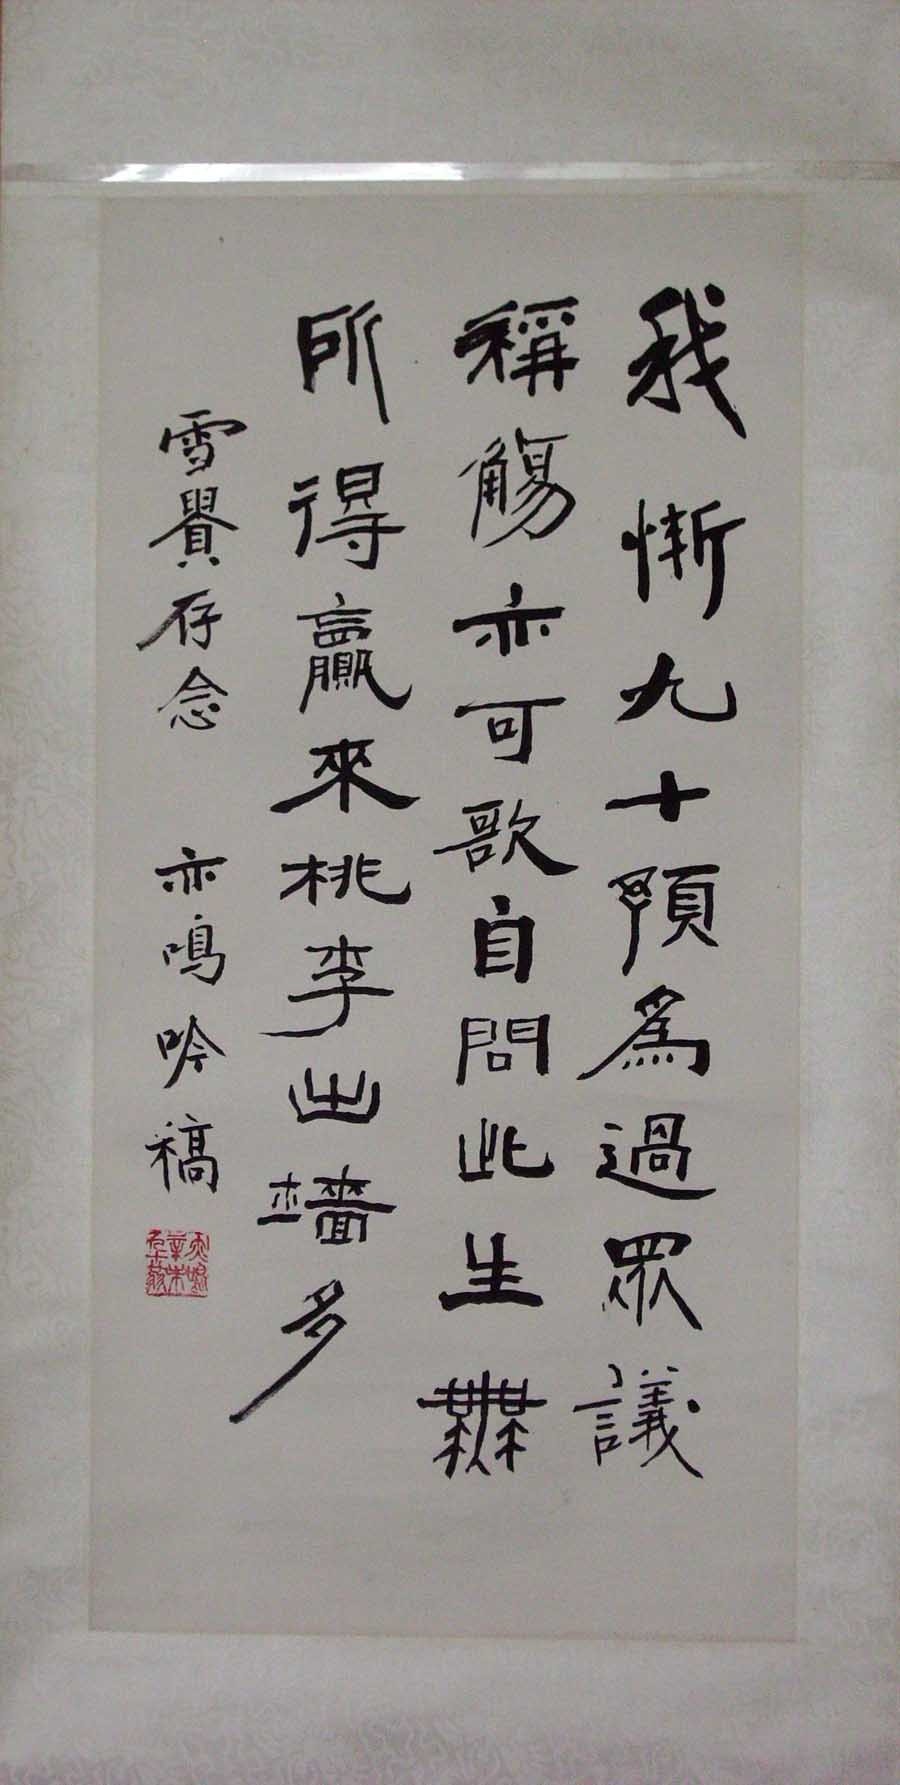 我慚九十預為過眾議
稱觴亦可歌自問此生無
所得贏來桃李出墻多
雪賢存念 亦鳴吟稿